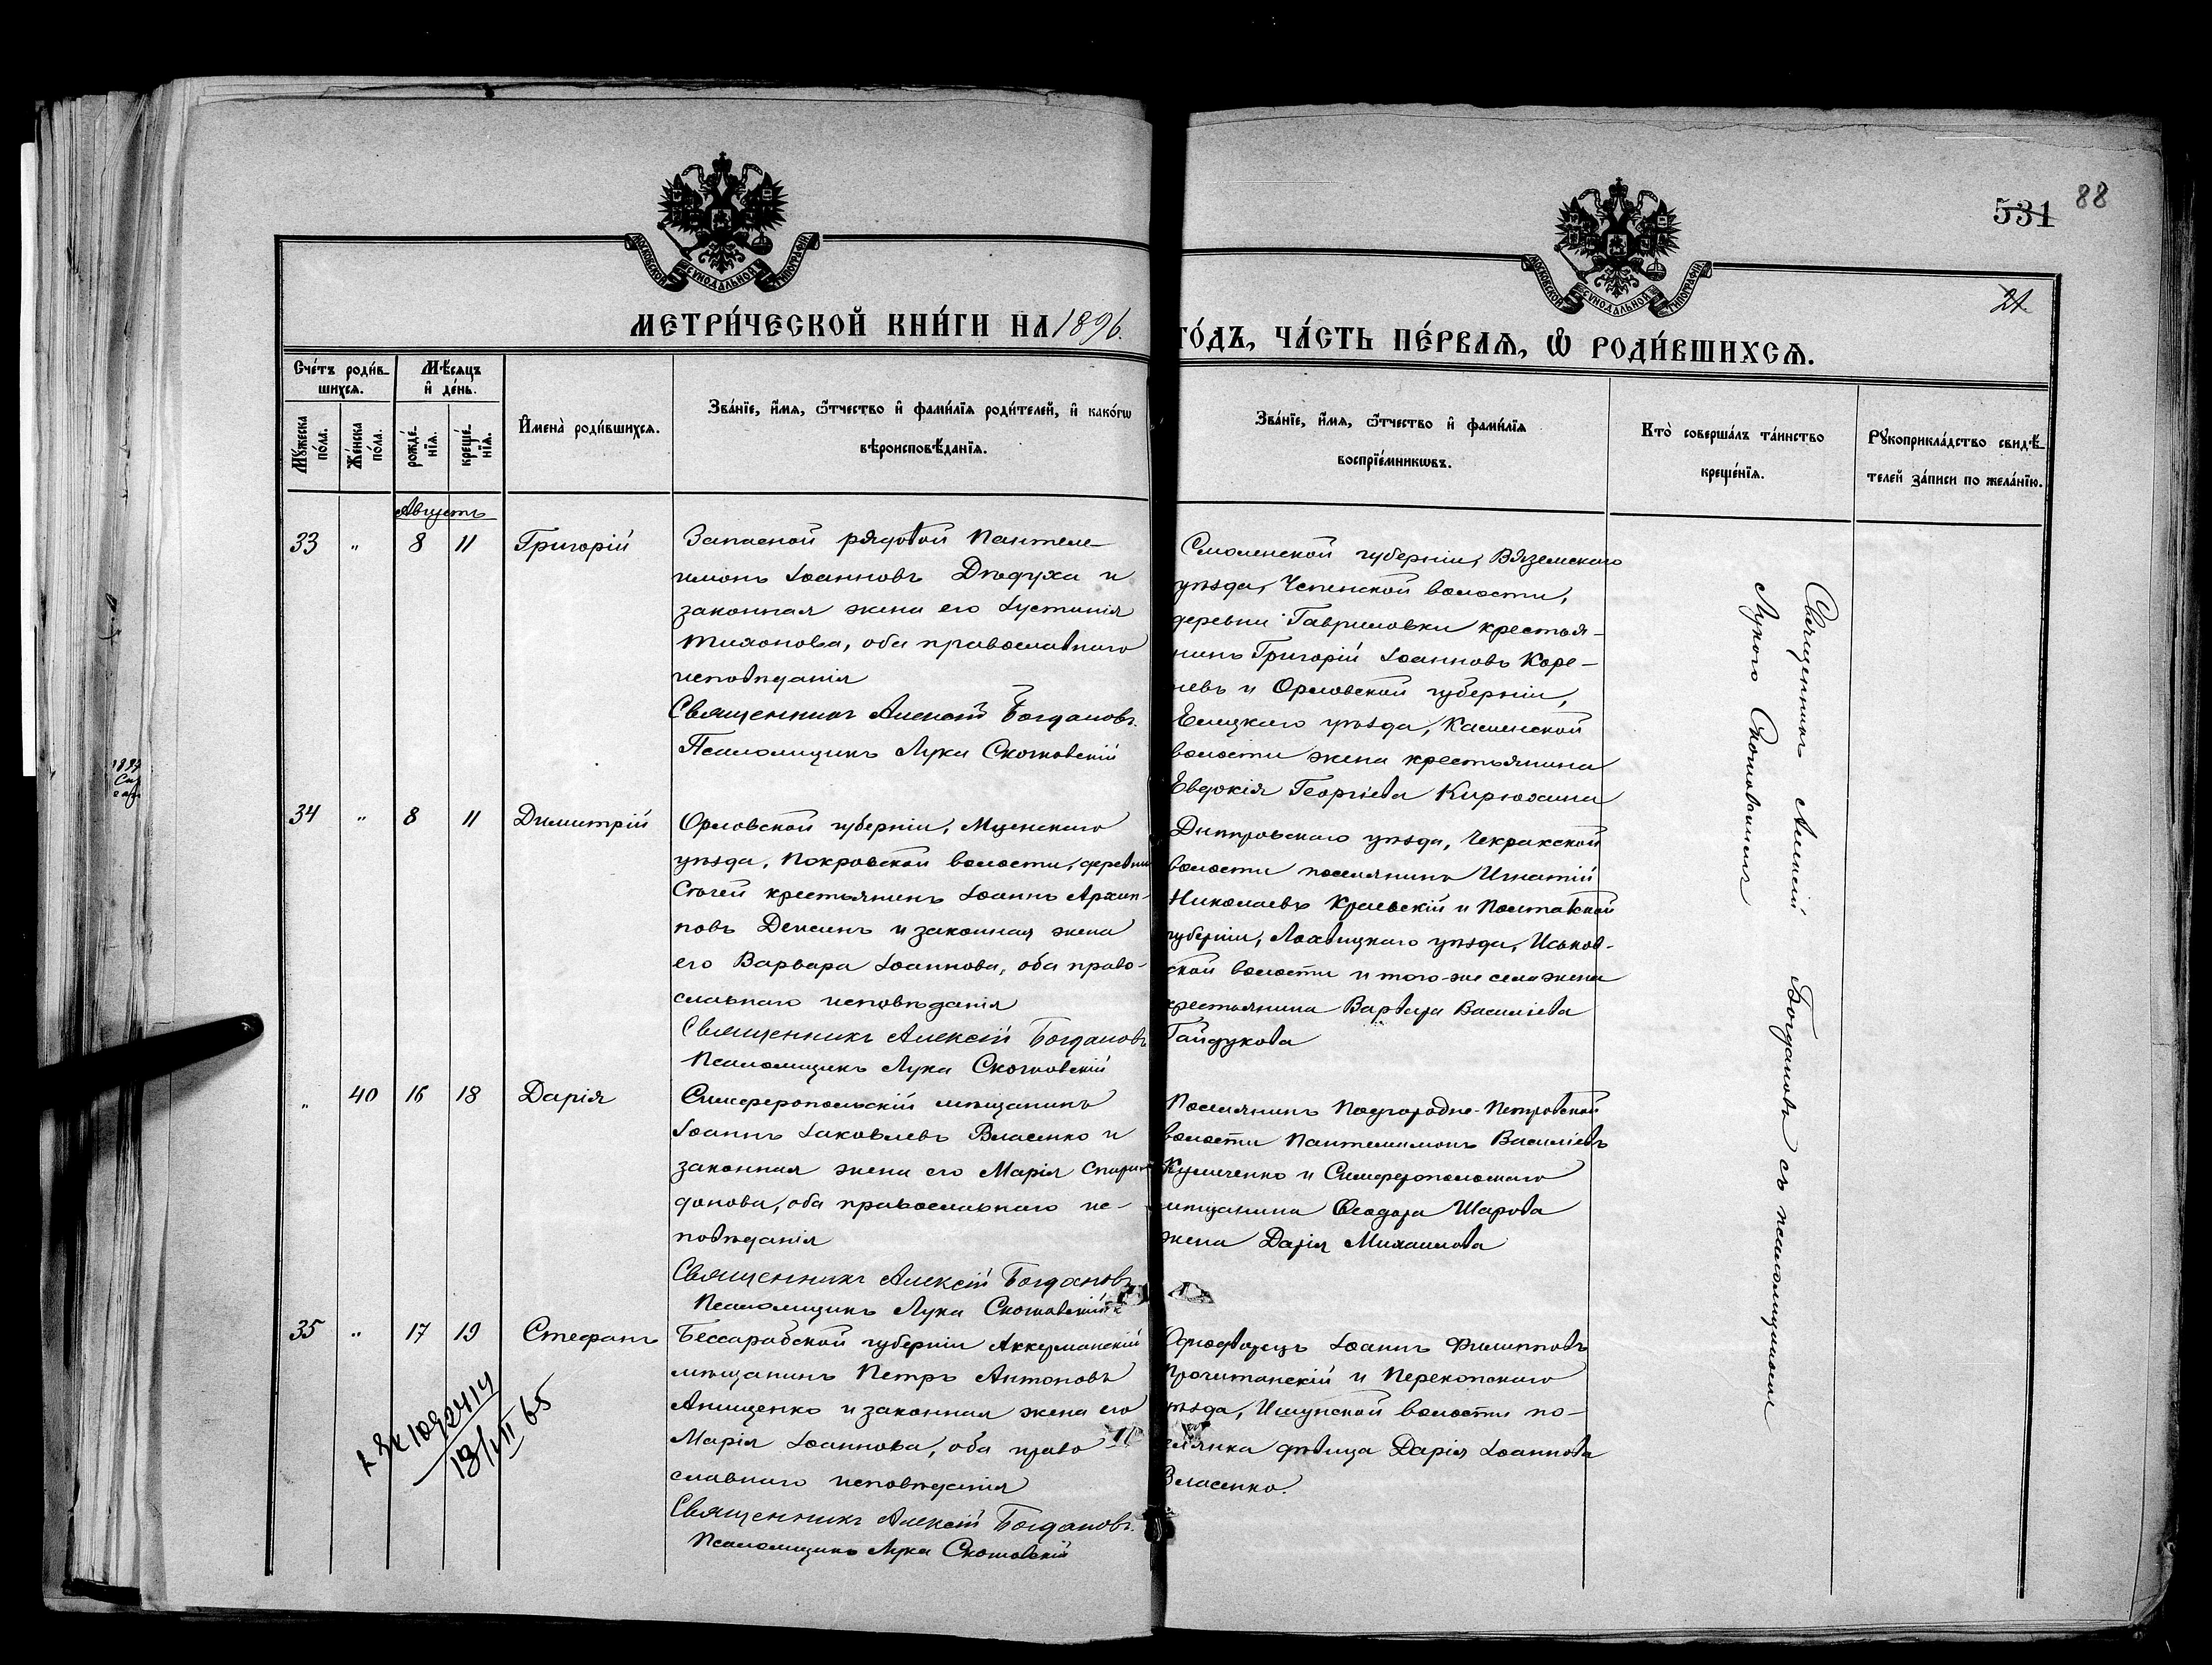 531 88
21.
МОСКОВСКОЙ СѴНОДАЛЬНОЙ ТИПОГРАФІИ
МОСКОВСКОЙ СѴНОДАЛЬНОЙ ТИПОГРАФІИ
МЕТРИ́ЧЕСКОЙ КНИ́ГИ НА 1896. ГО́ДЪ, ЧА́СТЬ ПЕ́РВАѦ, Ѡ РОДИ́ВШИХСѦ.
Сче́тъ роди́в-
шихсѧ.
Мѣ́сѧцъ
и҆ де́нь.
Мꙋ́жеска по́ла.
Же́нска по́ла.
рожде́-
нїѧ.
креще́-
нїѧ.
И҆мена̀ роди́вшихсѧ.
Зва́нїе, и҆́мѧ, ѻ҆́тчество и҆ фами́лїѧ роди́телей, и҆ како́гѡ
вѣроисповѣ́данїѧ.
Зва́нїе, и҆́мѧ, ѻ҆́тчество и҆ фами́лїѧ
воспрїе́мникѡвъ.
Кто̀ соверша́лъ та́инство
креще́нїѧ.
Рꙋкоприкла́дство свидѣ́-
телей за́писи по жела́нїю.
Августъ
33 " 8 11 Григорій
Запасной рядовой Пантеле-
имонъ Іоанновъ Дѣдуха и
законная жена его Іустинія
Тихонова, оба православнаго
исповѣданія
Священникъ Алексій Богдановъ.
Псаломщикъ Лука Скотовскій
Смоленской губерніи, Вяземскаго
уѣзда, Чепинской волости,
деревни Гавриловки крестья-
нинъ Григорій Іоанновъ Коре-
невъ и Орловской губерніи,
Елецкаго уѣзда, Казинской
волости жена крестьянина
Евдокія Георгіева Кирюхина
34 " 8 11 Димитрій
Орловской губерніи, Мценскаго
уѣзда, Покровской волости, деревни
крестьянинъ Іоаннъ Архип-
повъ Денсинъ и законная жена
его Варвара Іоаннова, оба право-
славнаго исповѣданія
Священникъ Алексій Богдановъ
Псаломщикъ Лука Скотовскій
Днѣпровскаго уѣзда, Чекракской
волости поселянинъ Игнатій
Николаевъ Краевскій и Полтавской
губерніи, Лохвицкаго уѣзда, Исков-
ской волости и того-же села жена
крестьянина Варвара Василіева
Гайдукова
" 40 16 18 Дарія
Симферопольскій мѣщанинъ
Іоаннъ Іаковлевъ Власенко и
законная жена его Марія Спири-
донова, оба православнаго ис-
повѣданія
Священникъ Алексій Богдановъ
Псаломщикъ Лука Скотовскій
Поселянинъ Подгородне-Петровской
волости Пантелеимонъ Василіевъ
Кумиченко и Симферопольскаго
мѣщанина Ѳеодора Шарова
жена Дарія Михаилова
35 " 17 19 Стефанъ
Бессарабской губерніи Аккерманскій
мѣщанинъ Петръ Антоновъ
Анищенко и законная жена его
Марія Іоаннова, оба право-
славнаго исповѣданія
Священникъ Алексій Богдановъ.
Псаломщикъ Лука Скотовскій
Однодворецъ Іоаннъ Филипповъ
Прочитанскій и Перекопскаго
уѣзда, Ишунской волости по-
селянка дѣвица Дарія Іоаннова
Власенко.
Священникъ Алексій Богдановъ съ псаломщикомъ
Лукою Скотовскимъ
13/VII 65